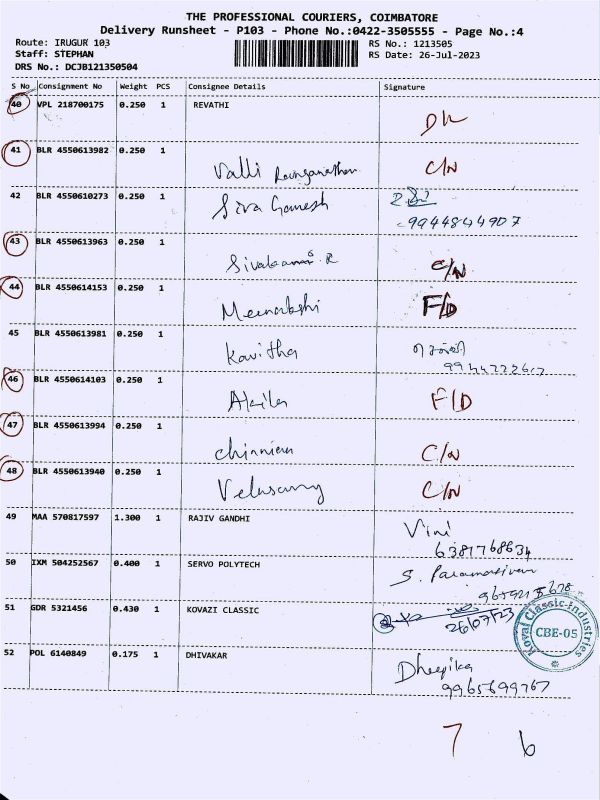 THE PROFESSIONAL COURIERS, COIMBATORE
Delivery Runsheet - P103 - Phone No.:0422-3505555 - Page No.:4
Route: IRUGUR 103 RS No.: 1213505
Staff: STEPHAN RS Date: 26-Jul-2023
DRS No.: DCJB121350504
S No Consignment No Weight PCS Consignee Details Signature
40 VPL 218700175 0.250 1 REVATHI
D/L
41 BLR 4550613982 0.250 1
Valli C/N
42 BLR 4550610273 0.250 1
Siva Gamesh
9944844907
43 BLR 4550613963 0.250 1
C/N
44 BLR 4550614153 0.250 1
Meenakshi F/D
45 BLR 4550613981 0.250 1
Kavitha
46 BLR 4550614103 0.250 1
Akila F/D
47 BLR 4550613994 0.250 1
C/N
48 BLR 4550613940 0.250 1
Velusamy C/N
49 MAA 570817597 1.300 1 RAJIV GANDHI
Vini
6381768634
50 IXM 504252567 0.400 1 SERVO POLYTECH
S. Paramasivam
51 GDR 5321456 0.430 1 KOVAZI CLASSIC
26/07/23
Royal Classic Industries
CBE-05
52 POL 6140849 0.175 1 DHIVAKAR
Dheepika
9965699767
7 6